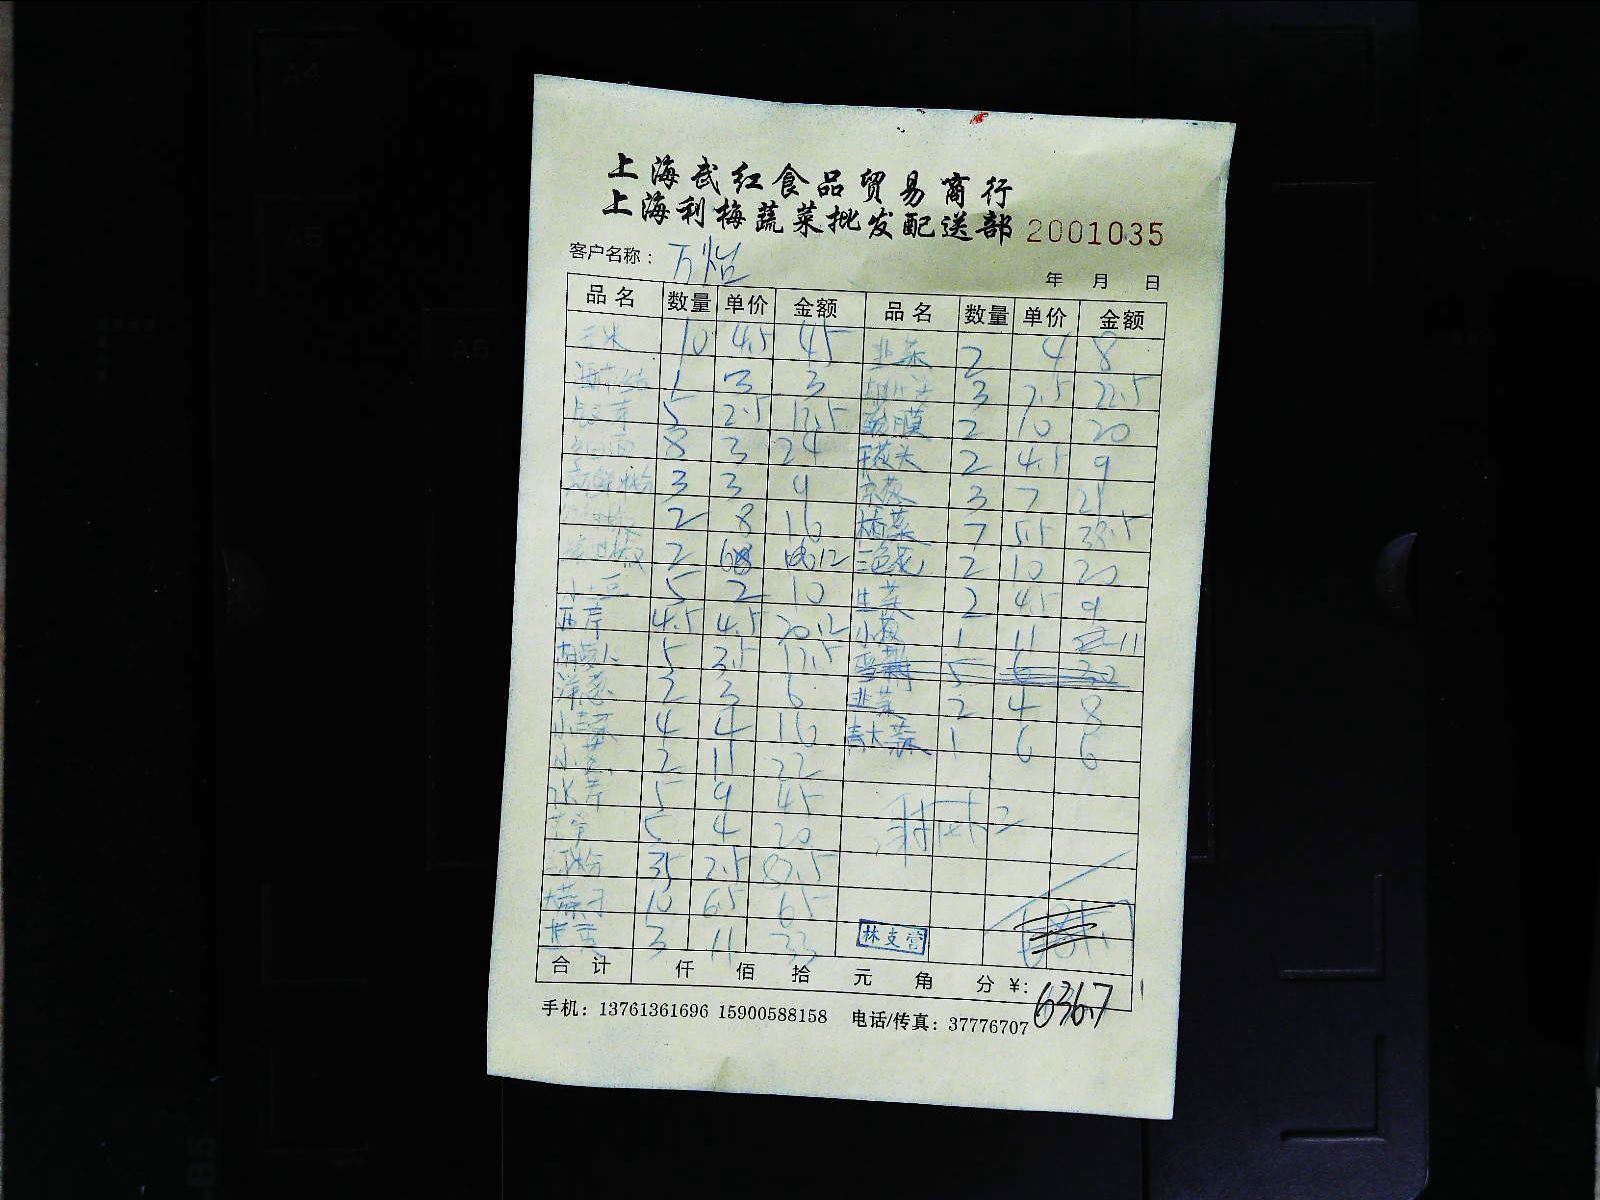 上海武红食品贸易商行
上海利梅蔬菜批发配送部 2001035
客户名称： 万怡
年 月 日
品名 数量 单价 金额 品名 数量 单价 金额
玉米 10 4.5 45 韭菜 2 4 8
海带结 1 3 3 3 7.5 22.5
豆芽 5 2.5 12.5 膜 2 10 20
8 3 24 2 4.5 9
3 3 9 京葱 3 7 21
2 8 16 7 5.5 38.5
2 12 三色 2 10 20
5 2 10 生菜 2 4.5 9
西芹 4.5 4.5 20.2 小葱 1 11 11
胡萝卜 5 3.5 17.5 5 6 30
洋葱 2 3 6 韭菜 2 4 8
小青菜 4 4 16 青大蒜 1 6 6
小葱 2 11 22
水芹 5 9 45
5 4 20
35 2.5 87.5
10 6.5 65
3 11 33 林支营
合计 仟 佰 拾 元 角 分 ¥: 636.7
手机：13761361696 15900588158 电话/传真：37776707